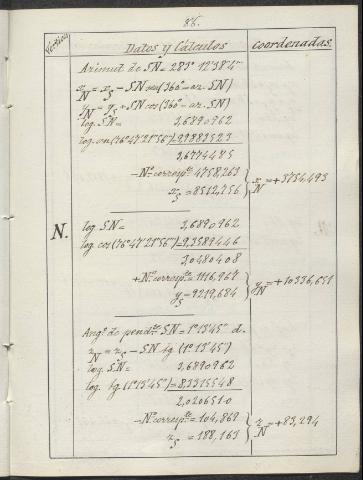 86.
Vertices Datos y Cálculos Coordenadas.
Azimut de SN = 283° 12' 38'4"
x_N = x_S − SN sen(360° − az. SN)
y_N = y_S + SN cos(360° − az. SN)
log. SN = 3,6890962
log. sen(76°47'21'56") = 9,9883523
3,6774485
−Nº. corresp.te = 4758,263
x_S = 8512,756
x_N = +3754,493
N. log. SN = 3,6890962
log. cos(76°47'21'56") = 9,3589446
3,0480408
+Nº. corresp.te = 1116,967
y_S = 9219,684
y_N = +10336,651
Ang.º de pend.te SN = 1°13'45" d.
z_N = z_S − SN tg (1°.13'45")
log. SN = 3,6890962
log. tg (1°13'45") = 8,3315548
2,0206510
−Nº. corresp.te = 104,869
z_S = 188,163
z_N = +83,294